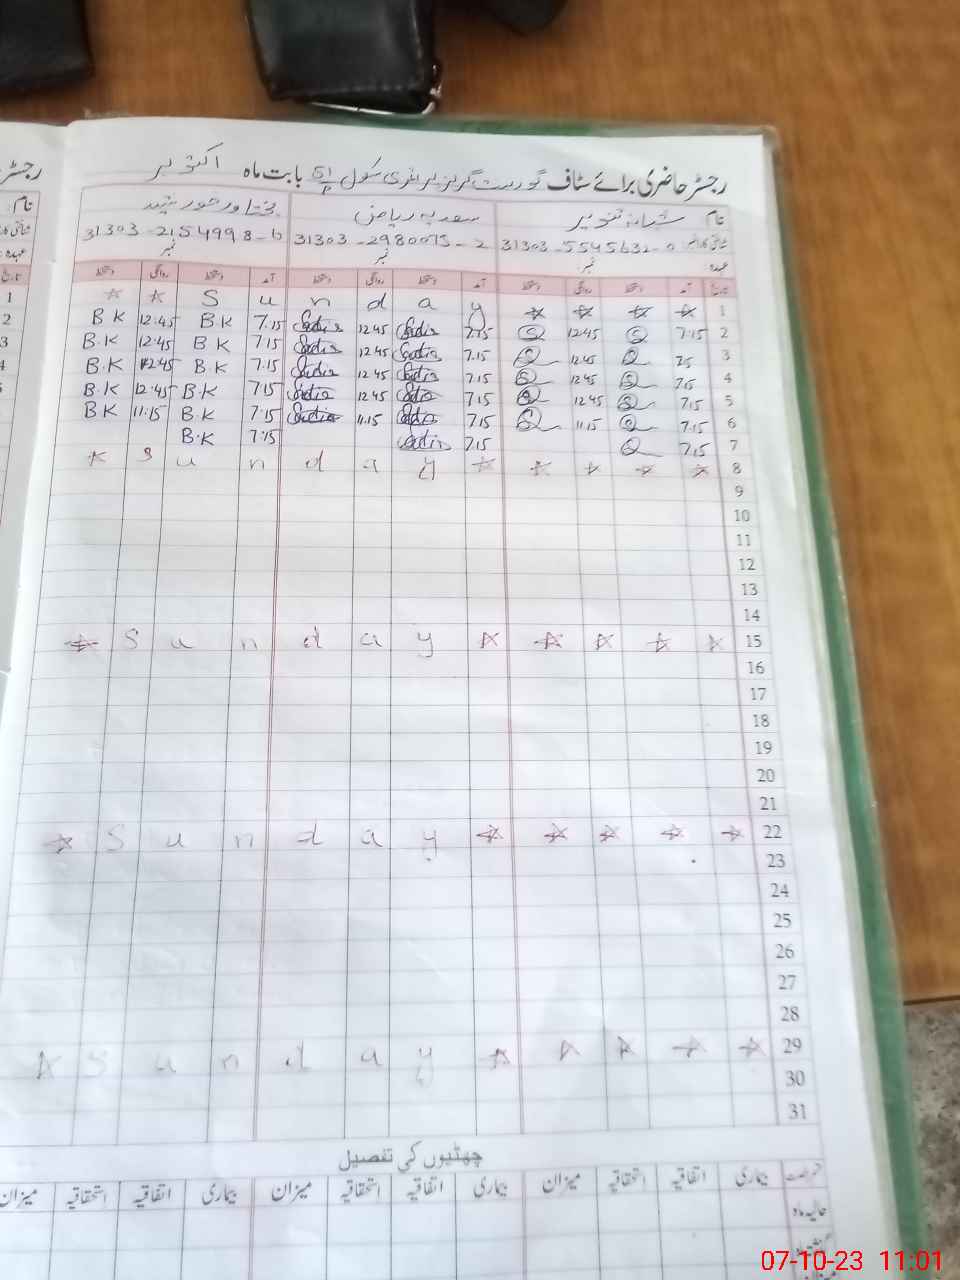 رجسٹر حاضری برائے سٹاف گورنمنٹ گرلز پرائمری سکول 51/P بابت ماہ اکتوبر
نام شبانہ تنویر سعدیہ ریاض بختاور خورشید
شناختی کارڈ نمبر 31303-5545632-0 31303-2980075-2 31303-2154998-6
عہدہ: نمبر نمبر نمبر
تاریخ آمد دستخط روانگی دستخط آمد دستخط روانگی دستخط آمد دستخط روانگی دستخط
☆ ☆ S u n d a y ☆ ☆ ☆ ☆ 1
BK 12:45 BK 7.15 Sadia 12 45 Sadia 7.15 12:45 7.15 2
B.K 12:45 BK 7.15 Sadia 12 45 Sadia 7.15 12 45 75 3
B.K 12:45 B.K 7.15 Sadia 12 45 Sadia 7.15 12 45 7.15 4
B.K 12:45 B.K 7.15 Sadia 12 45 Sadia 7.15 12 45 7.15 5
BK 11:15 B.K 7.15 Sadia 11.15 Sadia 7.15 11.15 7.15 6
B.K 7.15 Sadia 7.15 7.15 7
☆ S u n d a y ☆ ☆ ☆ ☆ ☆ 8
9
10
11
12
13
14
☆ S u n d a y ☆ ☆ ☆ ☆ ☆ 15
16
17
18
19
20
21
☆ S u n d a y ☆ ☆ ☆ ☆ ☆ 22
23
24
25
26
27
28
☆ S u n d a y ☆ ☆ ☆ ☆ ☆ 29
30
31
چھٹیوں کی تفصیل
رخصت بیماری اتفاقیہ استحقاقیہ میزان بیماری اتفاقیہ استحقاقیہ میزان بیماری اتفاقیہ استحقاقیہ میزان
حالیہ ماہ
رجسٹر
نام
عہدہ
تاریخ
1
2
3
4
07-10-23 11:01